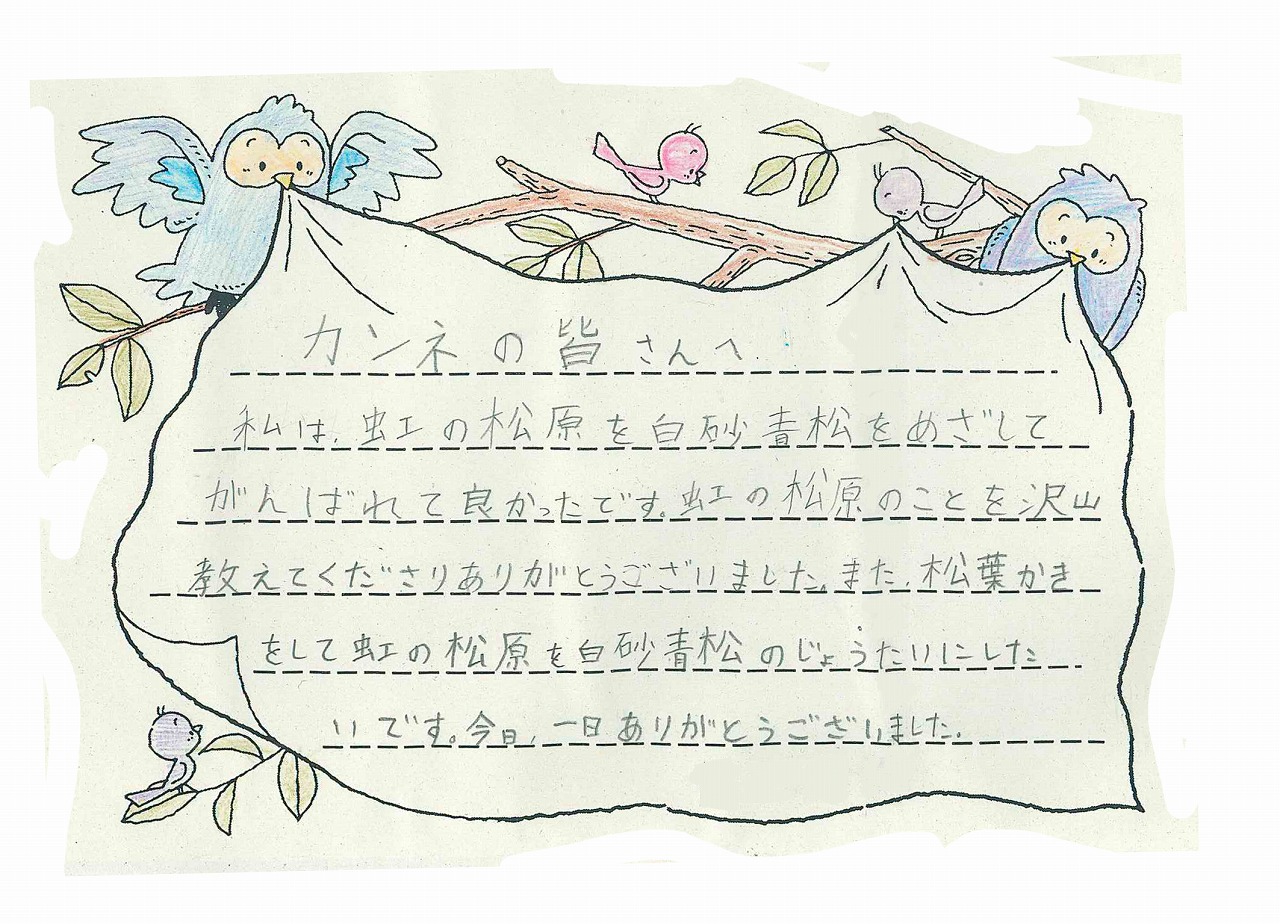 カンネの皆さんへ
私は、虹の松原を白砂青松をめざして
がんばれて良かったです。虹の松原のことを沢山
教えてくださりありがとうございました。また、松葉かき
をして虹の松原を白砂青松のじょうたいにした
いです。今日、一日ありがとうございました。